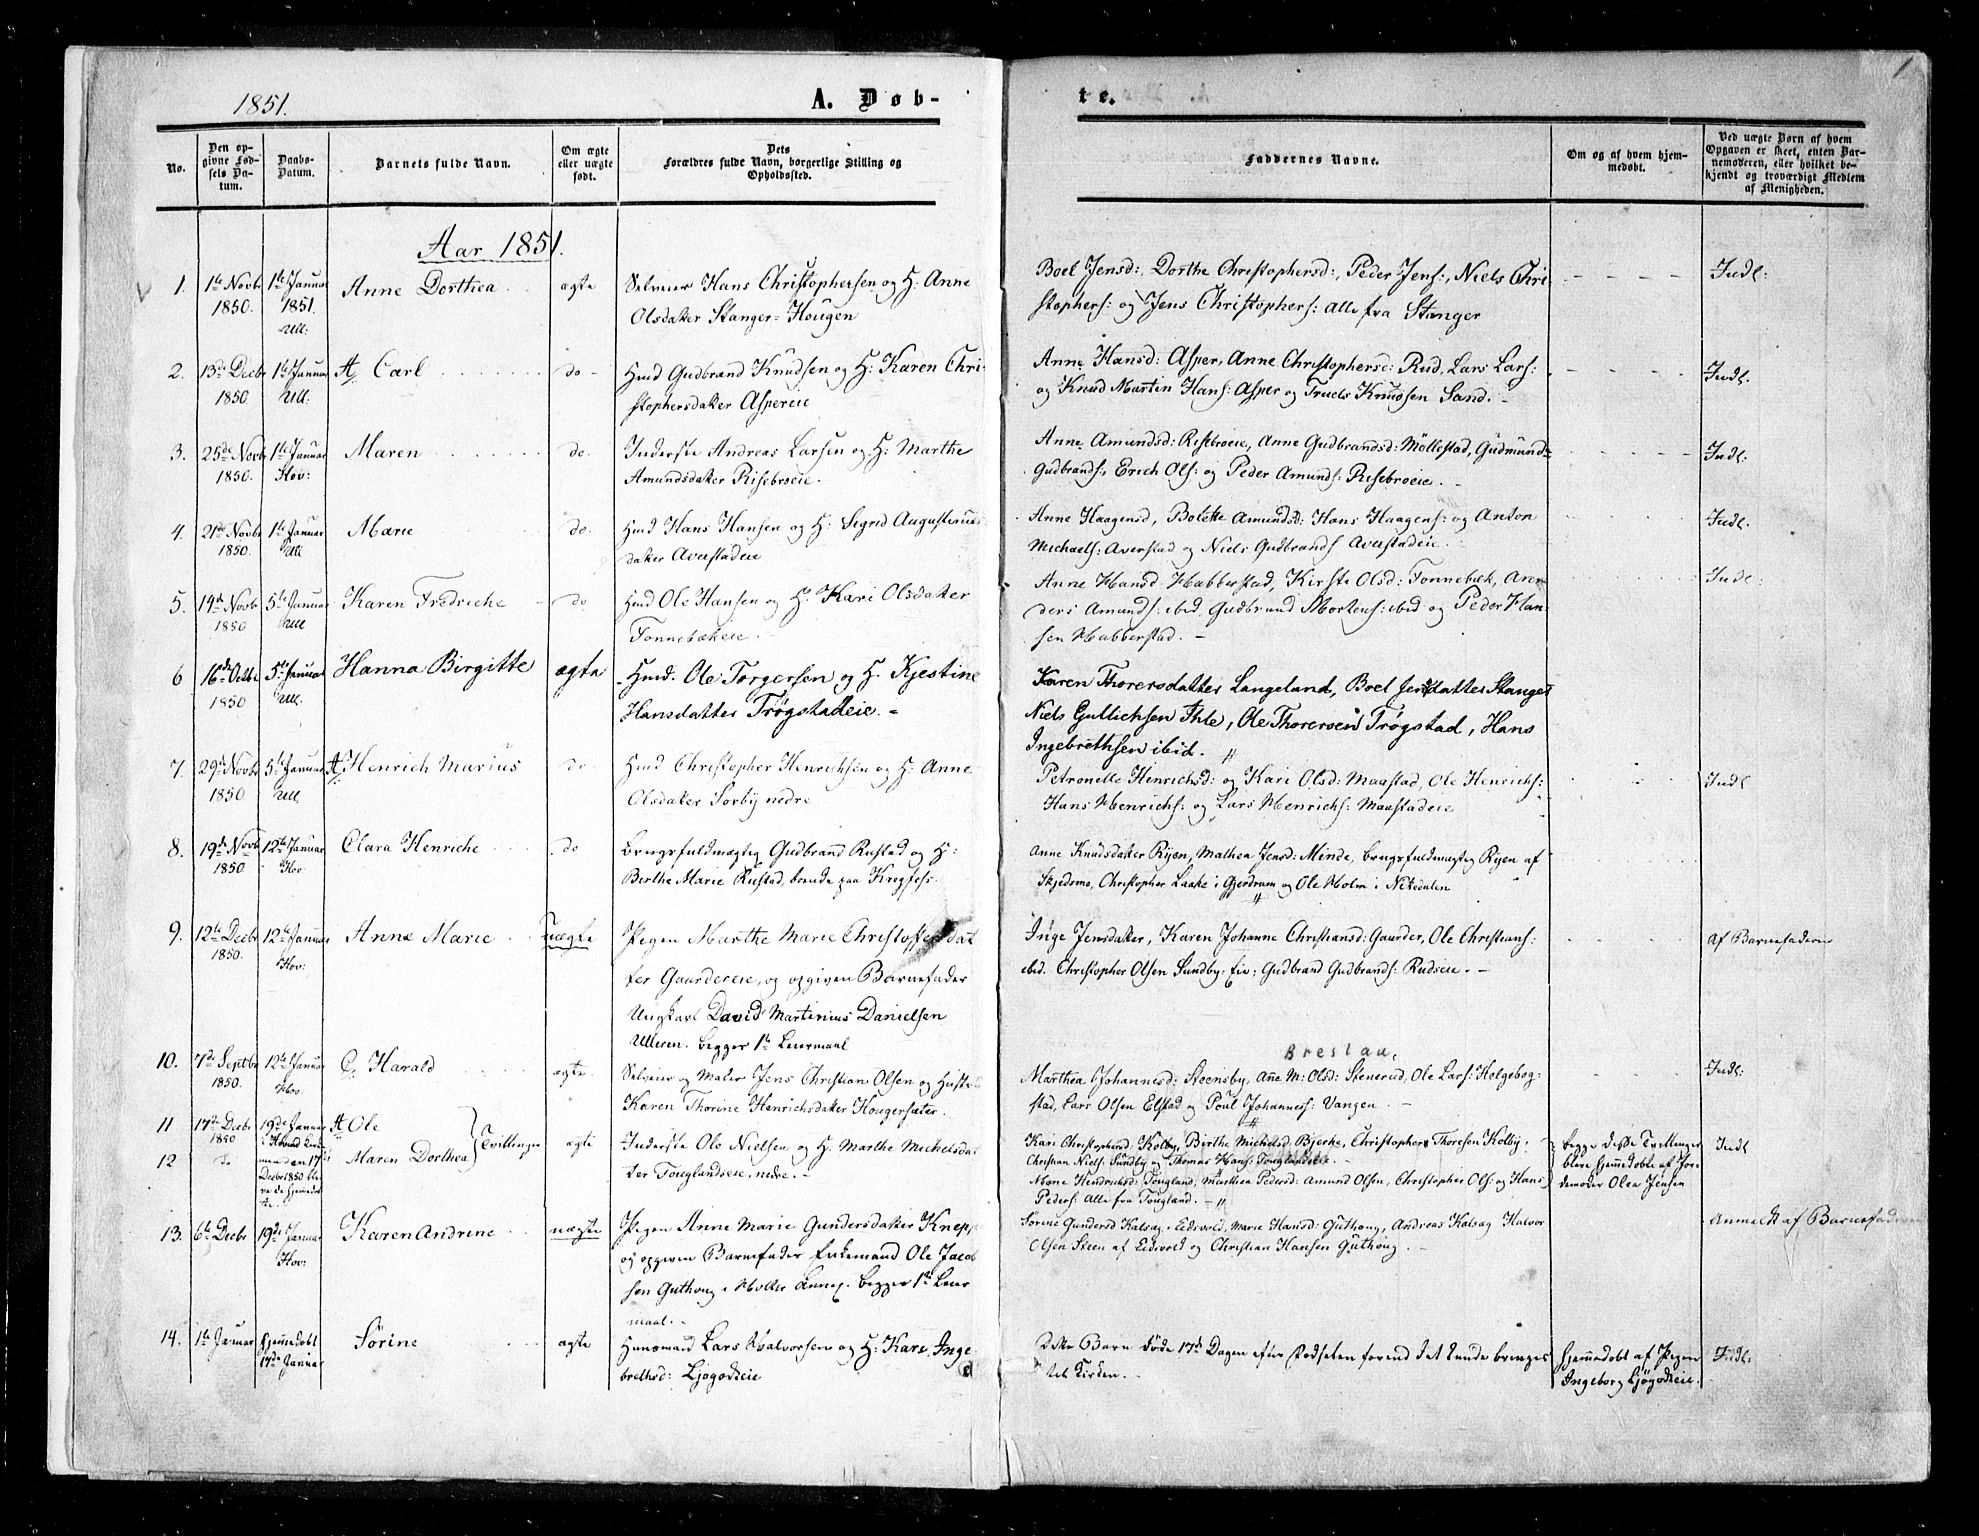 1851.
A. Døb-
No.
Den op-
givne Fød-
sels Da-
tum.
Daabs-
Datum.
Barnets fulde Navn.
Om ægte
eller uægte
født.
Dets
Forældres fulde Navn, borgerlige Stilling og
Opholdssted.
Aar 1851.
1. 1ste Novbr 1ste Januar Anne Dorthea ægte Selveier Hans Christophersen og H: Anne
1850. 1851. Olsdatter Stanger-Hougen
Ull:
2. 13de Decbr 1ste Januar A, Carl do Hmd Gudbrand Knudsen og H: Karen Chri-
1850. Ull. stophersdatter Aspereie
3. 25de Novbr 1ste Januar Maren do. Inderste Andreas Larsen og H: Marthe
1850. Hov: Amundsdatter Risebroeie.
4. 21de Novbr 1ste Januar Marie do. Hmd Hans Hansen og H: Sigrid Augustinus-
1850. Ull datter Averstadeie
5. 14de Novbr 5te Januar Karen Fredriche do Hmd Ole Hansen og H: Kari Olsdatter
1850 Ull Tonnebækeie.
6 16de Octbr 5te Januar Hanna Birgitte ægte Hmd. Ole Torgersen og H. Kjestine
1850 Ull. Hansdatter Trøgstadeie.
7. 29de Novbr 5te Januar A, Henrich Marius do Hmd Christopher Henrichsen og H: Anne
1850 Ull. Olsdatter Sørby nedre
8. 19de Novbr 12te Januar Clara Henriche do Brugsfuldmægtig Gudbrand Rustad og H:
1850. Hov: Berthe Marie Rustad, boende paa
9. 12te Decbr 12te Januar Anne Marie uægte Pigen Marthe Marie Christophersdat
1850. Hov: ter Gaardereie, og opgiven Barnefader
Ungkarl David Martinius Danielsen
Ulleren. begges 1ste Leiermaal
10. 7de Septbr 12te Januar C, Harald ægte Selveier og Maler Jens Christian Olsen og Hustr
1850. Hov Karen Thorine Henrichsdatter Hougersæter.
11 17de Decbr 19de Januar A Ole
1850
12 do Maren Dorthea Tvillinger ægte Inderste Ole Nielsen og H. Marthe Michelsdat
ter Touglandseie, nedre.
Decbr 1850 ble-
ve de hjemmedøb-
te.
13. 6te Decbr 19de Januar Karen Andrine uægte Pigen Anne Marie Gundersdatter Kneppe
Hov: og opgiven Barnefader Enkemand Ole Jacob
sen Guthong i Holter Annex. begges 1ste Leier
maal.
14. 1ste Januar hjemmedøbt Sørine ægte Huusmand Lars Halvorsen og H: Kari Inge
17de Januar brethsd: Ljøgodseie
te.
1
Faddernes Navne.
Om og af hvem hjem-
medøbt.
Ved uægte Børn af hvem
Opgaven er skeet, enten Bar-
nemoderen, eller hvilket be-
kjendt og troværdigt Medlem
af Menigheden.
Boel Jensd:, Dorthe Christophersd:, Peder Jens:, Niels Chri- Indl:
stophers: og Jens Christophers: alle fra Stanger
Anne Hansd: Asper, Anne Christophersd: Rud, Lars Lars: Indl.
og Knud Martin Hans: Asper og Truels Knudsen Sand.
Anne Amundsd: Risebroeie, Anne Gudbrandsd: Møllestad, Gudmund Indl:
Gudbrands, Erich Ols: og Peder Amunds: Risebroeie.
Anne Haagensd, Bolette Amundsd: Hans Haagens: og Anton Indl.
Michaels: Averstad og Niels Gudbrands Averstadeie.
Anne Hansd Habberstad, Kirsti Olsd: Tonnebæk, An- Indl:
ders Amunds: ibid, Gudbrand Mortens: ibid og Peder Han-
sen Habberstad.
Karen Thorersdatter Langeland, Boel Jensdatter Stanger
Niels Gullichsen Ihle, Ole Thorersen Trøgstad, Hans
Ingebrethsen ibid.
Petronelle Henrichsd: og Kari Olsd: Maastad, Ole Henrichs: Indl
Hans Henrichs: og Lars Henrichs: Maastadeie
Anne Knudsdatter Ryen, Mathea Jensd: Minde, brugsfuldmægtig Ryen af
Skjedsmo, Christopher Laake i Gjerdrum og Ole Holm i Nitedalen
Inge Jensdatter, Karen Johanne Christiansd: Gaarder, Ole Christians: Af Barnefaderen
ibid. Christopher Olsen Sundby-Eie; Gudbrand Gudbrands: Rudseie.
Breslau,
Marthea Johannesd: Steensby, Ane M: Olsd: Stenerud, Ole Lars: Holgebog- Indl:
stad, Lars Olsen Elstad og Poul Johanness: Vangen.
Kari Christophersd: Kolby, Birthe Michelsd Bjerke, Christopher Thoresen Kolby, begge disse Tvillinger Indl
Christian Niels: Sundby og Thomas Hans: Touglandseie. bleve hjemmedøbte af Jor-
Marie Hendrichsd: Tougland, Marthea Pedersd: Amund Olsen, Christopher Ols: og Hans demoder Olea Jensen
Peders: alle fra Tougland.
Sørine Gundersd Kalsag i Eidsvold, Marie Hansd: Guthong, Andreas Kalsag Halvor Anmeldt af Barnefaderen
Olsen Steen af Eidsvold og Christian Hansen Guthong.
Dette Barn døde 17de Dagen efter Fødselen forend det kunde bringes hjemmedøbt af Pigen Indl:
til Kirken. Ingeborg Ljøgodseie.